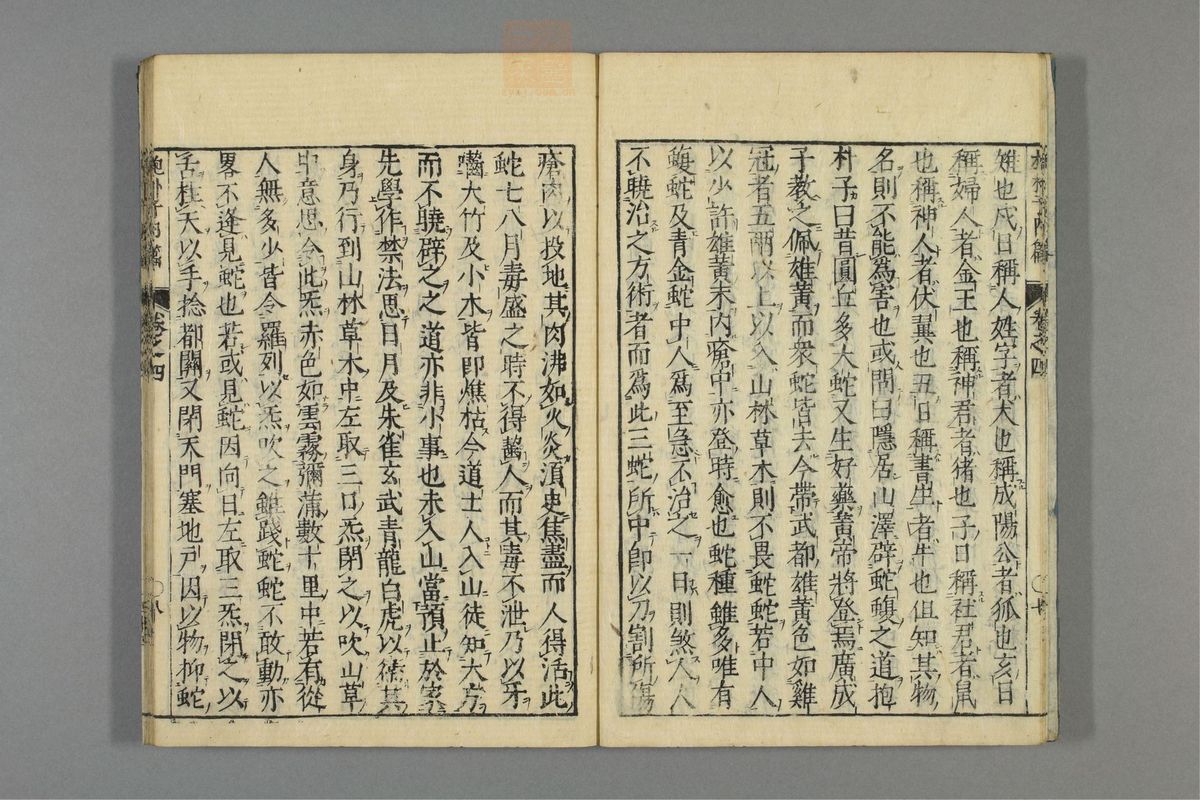 雉也戌日稱人姓字者犬也稱成陽公者狐也亥日
稱婦人者金玉也稱神君者猪也子日稱社君者鼠
也稱神人者伏翼也丑日稱書生者牛也但知其物
名則不能爲害也或問曰隱居山澤辟蛇蝮之道抱
朴子曰昔圓丘多大蛇又生好藥黃帝將登焉廣成
子教之佩雄黃而衆蛇皆去今帶武都雄黃色如雞
冠者五兩以上以入山林草木則不畏蛇蛇若中人
以少許雄黃末内瘡中亦登時愈也蛇種雖多唯有
蝮蛇及青金蛇中人爲至急不治之一日則煞人人
不曉治之方術者而爲此三蛇所中即以刀割所傷
瘡肉以投地其肉沸如火炎須臾焦盡而人得活此
蛇七八月毒盛之時不得齧人而其毒不泄乃以牙
嚙大竹及小木皆即燋枯今道士人入山徒知大方
而不曉辟之之道亦非小事也未入山當預止於家
先學作禁法思日月及朱雀玄武青龍白虎以衛其
身乃行到山林草木中左取三口炁閉之以吹山草
中意思令此炁赤色如雲霧彌滿數十里中若有從
人無多少皆令羅列以炁吹之雖踐蛇蛇不敢動亦
畧不逢見蛇也若或見蛇因向日左取三炁閉之以
舌柱天以手捻都關又閉天門塞地戸因以物抑蛇
抱朴子内篇
卷之四
抱朴子内篇
卷之四
八